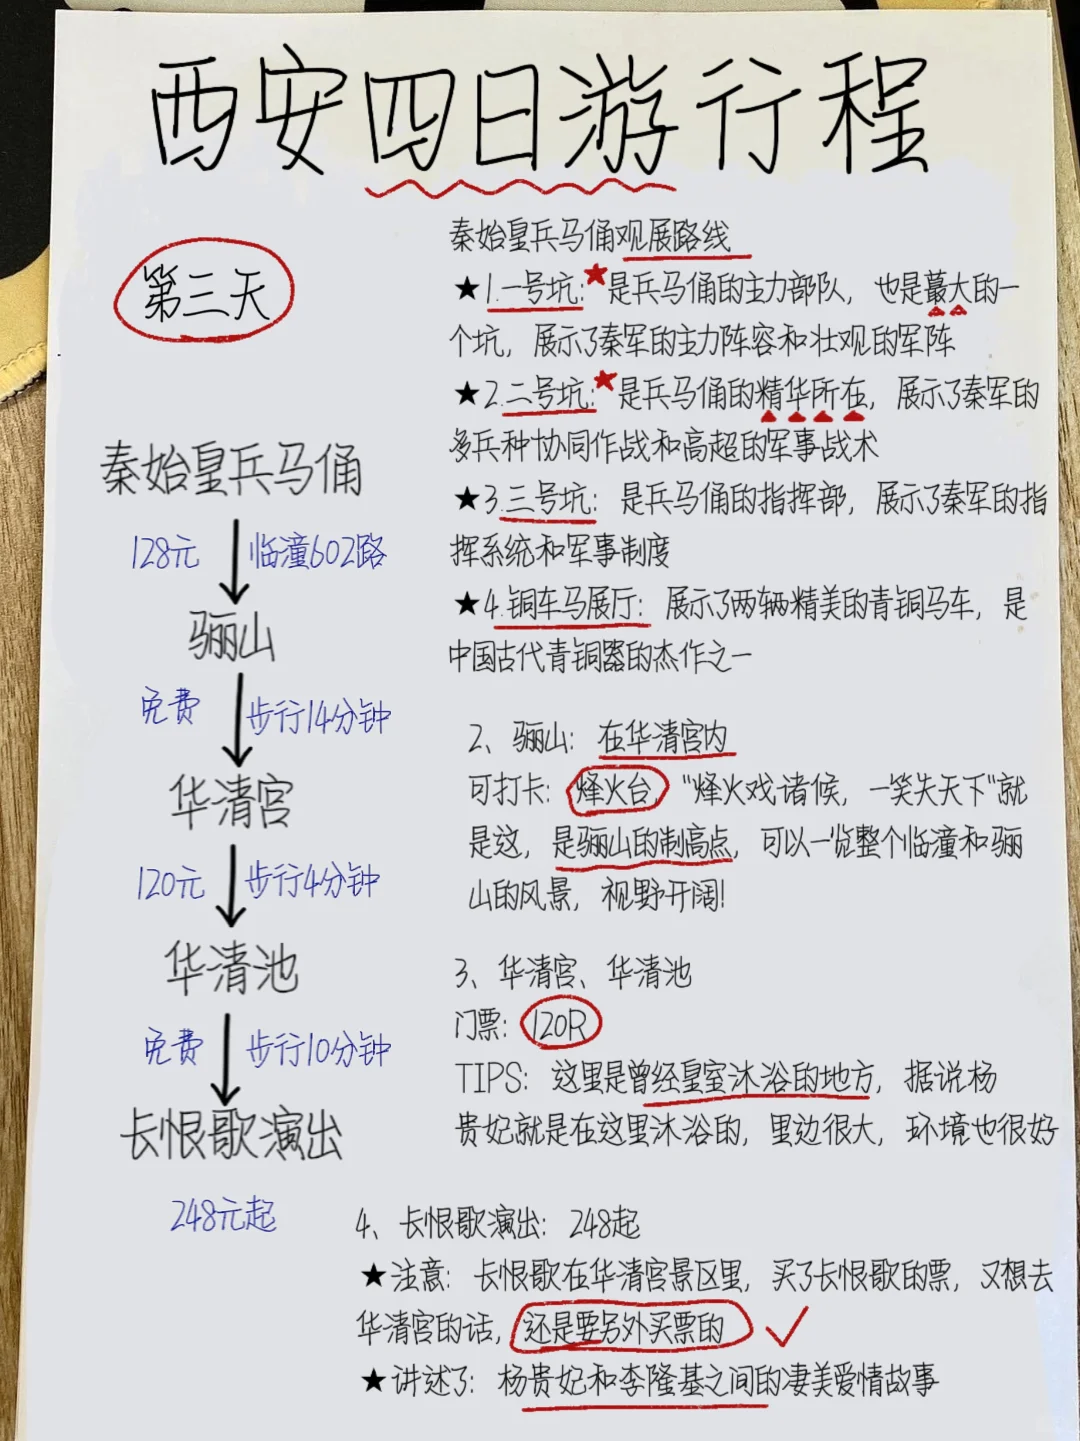 西安四日游行程
第三天
秦始皇兵马俑
128元 临潼602路
骊山
免费 步行14分钟
华清宫
120元 步行4分钟
华清池
免费 步行10分钟
长恨歌演出
248元起
秦始皇兵马俑观展路线
★1.一号坑:★是兵马俑的主力部队，也是最大的一
个坑，展示了秦军的主力阵容和壮观的军阵
★2.二号坑:★是兵马俑的精华所在，展示了秦军的
多兵种协同作战和高超的军事战术
★3.三号坑：是兵马俑的指挥部，展示了秦军的指
挥系统和军事制度
★4.铜车马展厅：展示了两辆精美的青铜马车，是
中国古代青铜器的杰作之一
2、骊山：在华清宫内
可打卡：烽火台，“烽火戏诸候，一笑失天下”就
是这，是骊山的制高点，可以一览整个临潼和骊
山的风景，视野开阔!
3、华清宫、华清池
门票：120R
TIPS：这里是曾经皇室沐浴的地方，据说杨
贵妃就是在这里沐浴的，里边很大，环境也很好
4、长恨歌演出：248起
★注意：长恨歌在华清宫景区里，买了长恨歌的票，又想去
华清宫的话，还是要另外买票的
★讲述了：杨贵妃和李隆基之间的凄美爱情故事